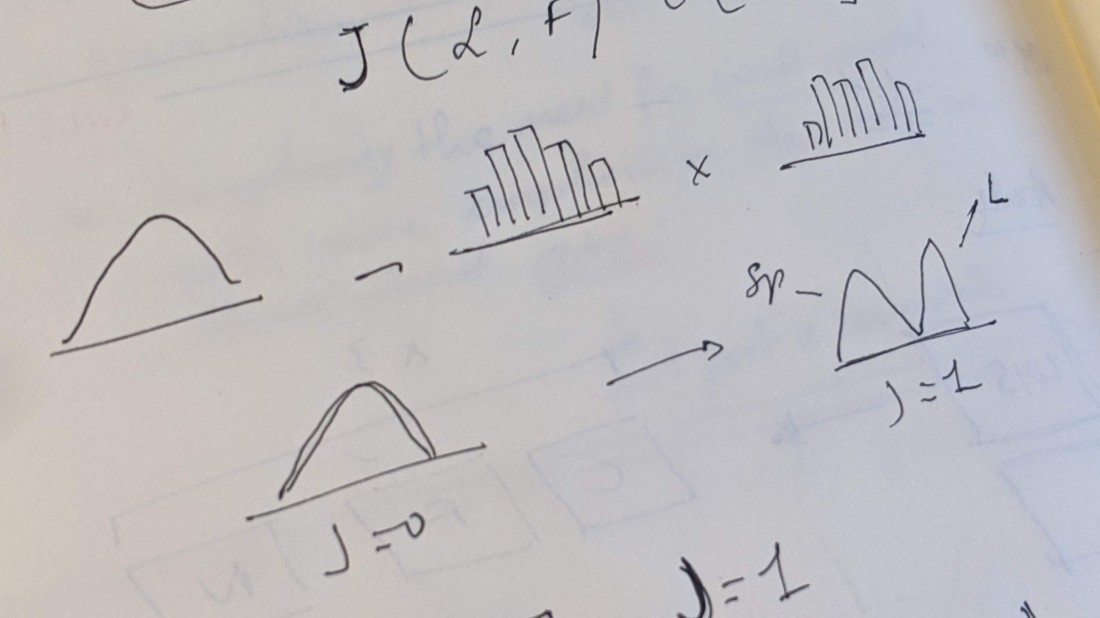 J(L, F)
x
Sp - L
J=1
J=0
J=1